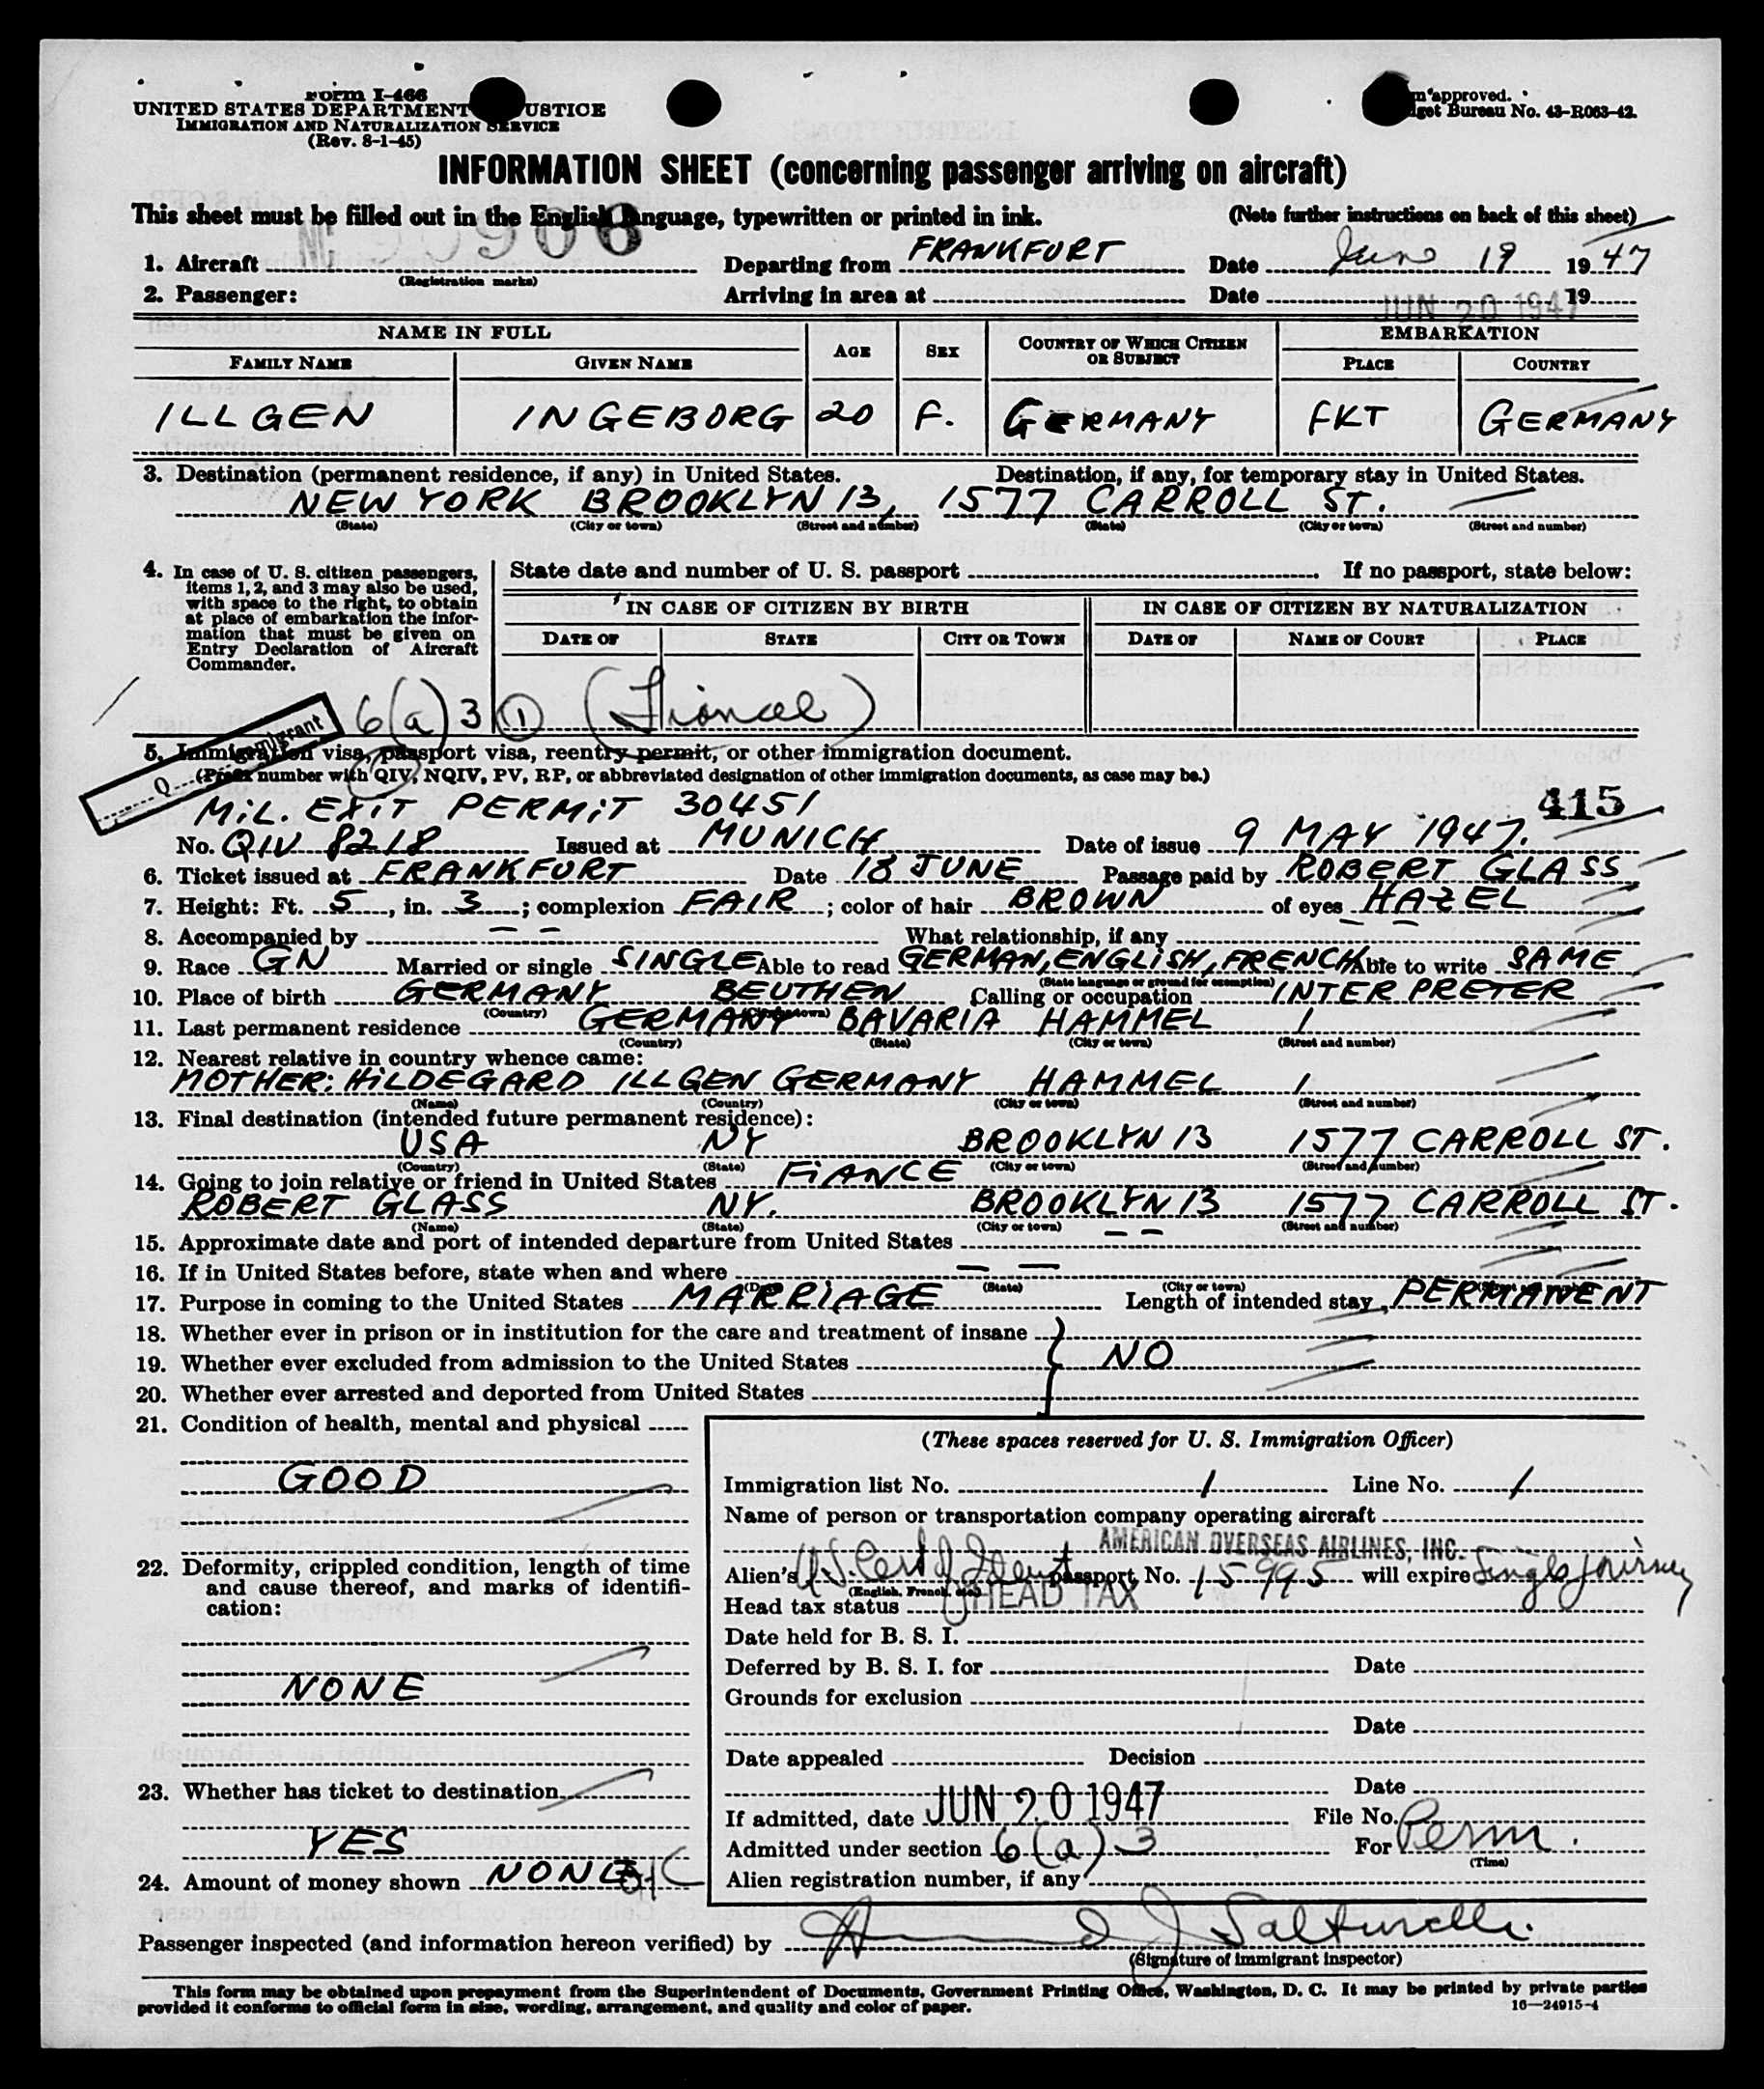 Form I-466
UNITED STATES DEPARTMENT USTICE
IMMIGRATION AND NATURALIZATION SERVICE
(Rev. 8-1-45)
approved.
Bureau No. 43-R063-42.
INFORMATION SHEET (concerning passenger arriving on aircraft)
This sheet must be filled out in the English language, typewritten or printed in ink. (Note further instructions on back of this sheet)
1. Aircraft NC 90906 Departing from FRANKFURT Date June 19 1947
(Registration marks)
2. Passenger: Arriving in area at Date JUN 20 1947 19
NAME IN FULL AGE SEX COUNTRY OF WHICH CITIZEN OR SUBJECT EMBARKATION
FAMILY NAME GIVEN NAME PLACE COUNTRY
ILLGEN INGEBORG 20 F. GERMANY FKT GERMANY
3. Destination (permanent residence, if any) in United States. Destination, if any, for temporary stay in United States.
NEW YORK BROOKLYN 13, 1577 CARROLL ST.
(State) (City or town) (Street and number) (State) (City or town) (Street and number)
4. In case of U. S. citizen passengers, items 1, 2, and 3 may also be used, with space to the right, to obtain at place of embarkation the information that must be given on Entry Declaration of Aircraft Commander.
State date and number of U. S. passport If no passport, state below:
IN CASE OF CITIZEN BY BIRTH IN CASE OF CITIZEN BY NATURALIZATION
DATE OF STATE CITY OR TOWN DATE OF NAME OF COURT PLACE
6(a) 3 (1) (Fiancee)
5. Immigration visa, passport visa, reentry permit, or other immigration document.
(Prefix number with QIV, NQIV, PV, RP, or abbreviated designation of other immigration documents, as case may be.)
Q
MIL. EXIT PERMIT 30451 415
No. QIV 8218 Issued at MUNICH Date of issue 9 MAY 1947.
6. Ticket issued at FRANKFURT Date 18 JUNE Passage paid by ROBERT GLASS
7. Height: Ft. 5, in. 3; complexion FAIR; color of hair BROWN of eyes HAZEL
8. Accompanied by -- What relationship, if any --
9. Race GN Married or single SINGLE Able to read GERMAN, ENGLISH, FRENCH Able to write SAME
(State language or ground for exemption)
10. Place of birth GERMANY BEUTHEN Calling or occupation INTERPRETER
(Country) (City or town)
11. Last permanent residence GERMANY BAVARIA HAMMEL 1
(Country) (State) (City or town) (Street and number)
12. Nearest relative in country whence came:
MOTHER: HILDEGARD ILLGEN GERMANY HAMMEL 1
(Name) (Country) (City or town) (Street and number)
13. Final destination (intended future permanent residence):
USA NY BROOKLYN 13 1577 CARROLL ST.
(Country) (State) (City or town) (Street and number)
14. Going to join relative or friend in United States FIANCE
ROBERT GLASS NY. BROOKLYN 13 1577 CARROLL ST.
(Name) (State) (City or town) (Street and number)
15. Approximate date and port of intended departure from United States --
16. If in United States before, state when and where --
(State) (City or town)
17. Purpose in coming to the United States MARRIAGE Length of intended stay PERMANENT
18. Whether ever in prison or in institution for the care and treatment of insane
19. Whether ever excluded from admission to the United States NO
20. Whether ever arrested and deported from United States
21. Condition of health, mental and physical
GOOD
22. Deformity, crippled condition, length of time and cause thereof, and marks of identification:
NONE
23. Whether has ticket to destination
YES
24. Amount of money shown NONE
(These spaces reserved for U. S. Immigration Officer)
Immigration list No. 1 Line No. 1
Name of person or transportation company operating aircraft
AMERICAN OVERSEAS AIRLINES, INC.
Alien's US Cert of Ident passport No. 15995 will expire Single journey
(English, French, etc.)
Head tax status HEAD TAX
Date held for B. S. I.
Deferred by B. S. I. for Date
Grounds for exclusion
Date
Date appealed Decision
Date
If admitted, date JUN 20 1947 File No.
Admitted under section 6(a) 3 For Perm.
(Time)
Alien registration number, if any
Passenger inspected (and information hereon verified) by
(Signature of immigrant inspector)
This form may be obtained upon prepayment from the Superintendent of Documents, Government Printing Office, Washington, D. C. It may be printed by private parties
provided it conforms to official form in size, wording, arrangement, and quality and color of paper. 16—24915-4